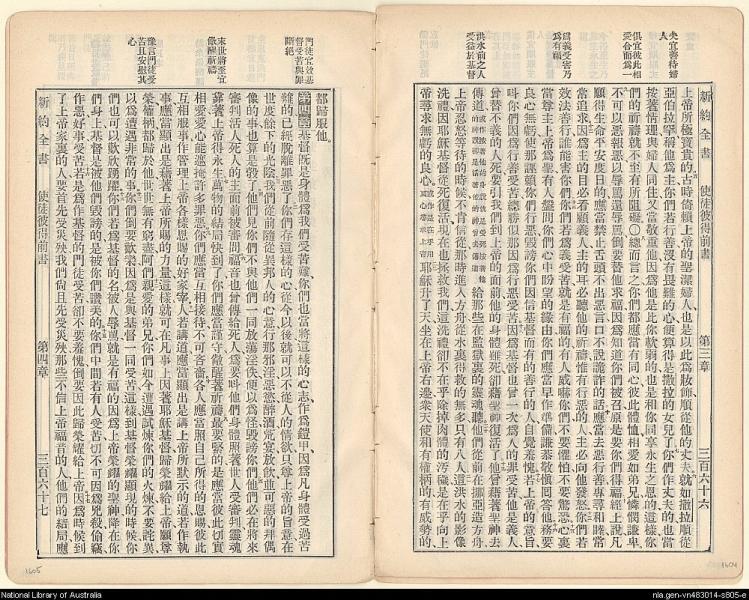 夫宜善待婦
人
俱宜彼此相
愛合而爲一
爲義受害乃
爲有福
洪水前之人
受益於基督
新約全書 使徒彼得前書 第三章 三百六十六
上帝所極寶貴的古時倚賴上帝的聖潔婦人也是以此爲妝飾順從他的丈夫就如撒拉順從
亞伯拉罕稱他爲主你們若行善沒有畏難的心便算得是撒拉的女兒了你們作丈夫的也當
按著情理與婦人同住又當敬重他因爲他是比你軟弱的也是和你同享永生之恩的這樣你
們的祈禱就不至有所阻礙〇總而言之你們都應當有同心彼此體恤相愛如弟兄憐憫謙卑
不可以惡報惡以辱罵還辱罵倒要替他求福因爲知道你們被召原是要你們得福經上說凡
願得生命平安度日的應當禁止舌頭不出惡言口不說詭詐的話應當去惡行善專尋和睦常
常追求因爲主的目必看顧義人主的耳必聽他的祈禱惟有行惡的人主必向他發怒你們若
效法善行誰能害你們你們若爲義受苦就是有福的有人威嚇你們不要懼怕不要驚惶心裏
當尊主上帝爲聖有人盤問你們心中盼望的緣由你們應當早作準備謙恭敬慎回答他務要
良心無虧使那誣賴你們行惡毀謗你們因信基督而有的善行的人自覺羞愧若是上帝的旨意
叫你們因行善受苦總勝似那因行惡受苦因基督也曾一次爲人的罪受苦他是義人
曾替不義的人死要引我們到上帝的面前他的身體雖死卻藉聖神復活了他曾藉著聖神去
傳道給那些在監獄裏的靈魂聽他們從前在挪亞造方舟
上帝忍怒等待的時候不肯信從那時進入方舟從水裏得救的無多只有八人這洪水的影像
洗禮因耶穌基督從死復活現在也拯救我們這洗禮卻不在乎除掉肉體的汚穢是在乎向上
帝尋求無虧的良心耶穌升了天坐在上帝右邊衆天使和有權柄的有威勢的
門徒宜效基
督受苦與罪
斷絕
末世將至宜
儆醒祈禱
豫言門徒受
苦且安慰其
心
都歸服他
第四章
基督既是身體爲我們受苦難你們也當將這樣的心志作爲鎧甲因爲凡身體受過苦
難的已經脫離罪惡了你們存這樣的心從今以後就可以不從人的情欲只尊上帝的旨意在
世度餘下的光陰我們從前隨從異邦人的心意行那邪淫惡慾醉酒荒宴放飲並可惡的拜偶
像的事也算是彀了他們見你們不與他們一同放蕩淫佚便以爲怪毀謗你們他們必在將來
審判活人死人的主面前被審問福音也曾傳給死人爲要叫他們身體照著世人受審判靈魂
靠著上帝得永生萬物的結局快到了你們應當謹守儆醒著祈禱最要緊的是應當彼此切實
相愛愛心能遮掩許多罪惡你們應當互相接待不可吝嗇各人應當照自己所得的恩賜彼此
互相服事作管理上帝各樣恩賜的好家宰人若講道應當顯出是講上帝所默示的道若作執
事應當顯出是藉著上帝所賜的力量這樣就可在凡事上因著耶穌基督歸榮耀給上帝願尊
榮權柄都歸於他世世無有窮盡阿們親愛的弟兄你們如今遭遇試煉你們的火煉不要詫異
以爲所遭遇非常的事你們倒要歡樂因爲是與基督一同受苦這樣到基督榮耀顯現的時候你
們也可以歡欣踴躍你們若爲基督的名被人辱罵就是有福的因爲上帝榮耀的聖神降在你
們身上基督是被他們毀謗的是被你們讚美的你們中間若有人受苦切不可因爲兇殺偷竊
作惡好事受苦若是爲作基督的門徒受苦卻不要羞愧倒要因此歸榮耀給上帝因爲時候到
了上帝家裏的人要首先受災殃我們尙且先受災殃那些不信上帝福音的人他們的結局應
新約全書 使徒彼得前書 第四章 三百六十七
1605
1604
National Library of Australia
nla.gen-vn483014-s805-e